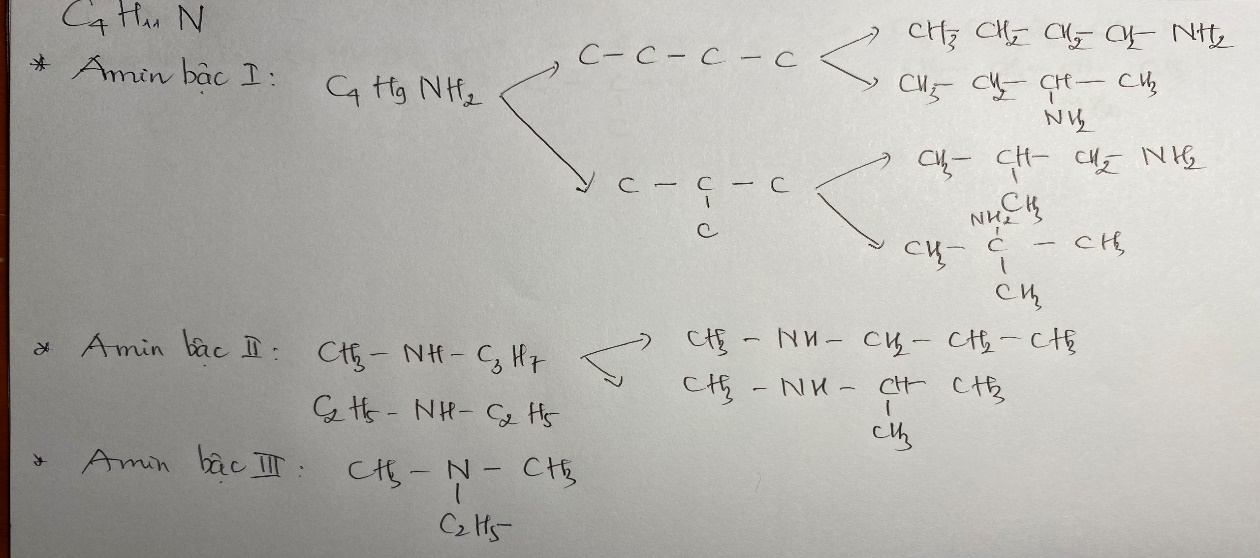 C4 H11 N
* Amin bậc I: C4 H9 NH2 C – C – C – C CH3– CH2– CH2– CH2– NH2
CH3– CH2– CH – CH3
NH2
C – C – C CH3– CH– CH2– NH2
C CH3
NH2
CH3– C – CH3
CH3
* Amin bậc II: CH3 – NH – C3 H7 CH3 – NH – CH2 – CH2 – CH3
CH3 – NH – CH– CH3
CH3
C2 H5 – NH – C2 H5
* Amin bậc III: CH3 – N – CH3
C2 H5